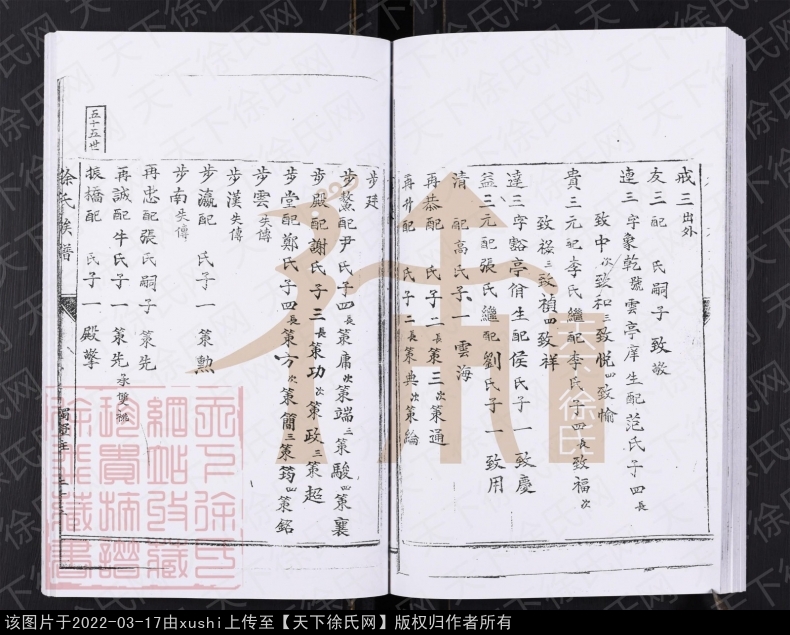 戒三 出外
友三 配 氏嗣子 致敬
連三 字象乾號雲亭庠生配范氏子四 長
致中 次 致和 三 致悦 四 致愉
貴三 元配李氏繼配李氏子四 長 致福 次
致祿 三 致禎 四 致祥
達三 字谿亭佾生配侯氏子一 致慶
益三 元配張氏繼配劉氏子一 致用
清 配高氏子一 雲海
再恭 配 氏子二 長 策三 次 策通
再升 配 氏子二 長 策典 次 策綸
步廷
步鰲 配尹氏子四 長 策庸 次 策端 三 策駿 四 策襄
步殿 配謝氏子三 長 策功 次 策政 三 策超
步堂 配鄭氏子四 長 策方 次 策簡 三 策筠 四 策銘
步雲 失傳
步漢 失傳
步瀛 配 氏子一 策勲
步南 失傳
再忠 配張氏嗣子 策先
再誠 配牛氏子一 策先 承雙祧
振播 配 氏子一 殿擎
五十五世
徐氏族譜
天下徐氏
網站收藏
珍貴摘譜
徐氏藏書
徐氏
天下徐氏网
该图片于2022-03-17由xushi上传至【天下徐氏网】版权归作者所有